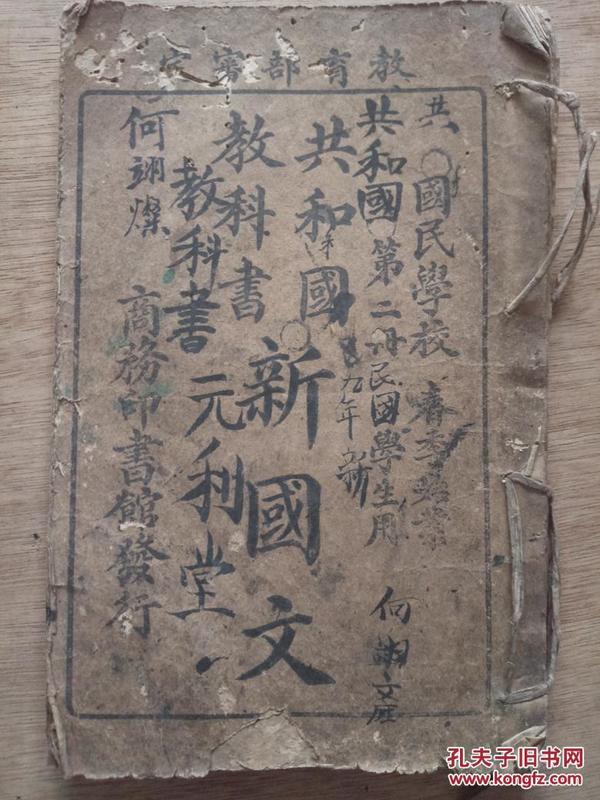 教育部審定
國民學校 春季始業
共和國 第二冊 民國學生用
九年
共和國
教科書
新國文
教科書 元利堂
何翊燦
商務印書館發行
何
孔夫子旧书网
www.kongfz.com